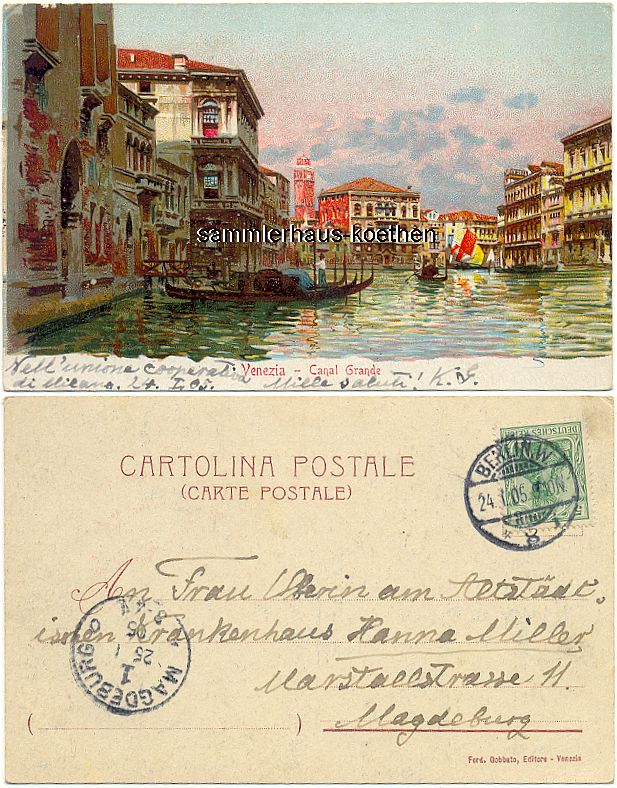 sammlerhaus-koethen
Nell'unione cooperativa Venezia - Canal Grande
di Milano. 24. I. 05. Mille saluti! K. G.
CARTOLINA POSTALE
(CARTE POSTALE)
DEUTSCHES REICH
BERLIN, W.
24. 1. 05.
* 8
An Frau Oberin am Altstädt.
ischen Krankenhaus Hanna Miller
Marstallstrasse 11.
Magdeburg
MAGDEBURG
25 1 05
1
( )
Ferd. Gobbato, Editore - Venezia